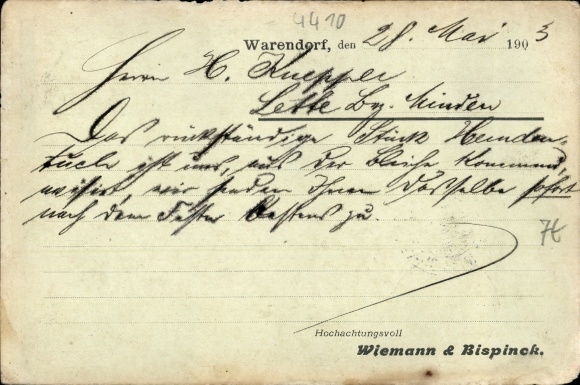 4410
Warendorf, den 28. Mai 1903
Herrn H. Knepper
Lette Bz. Minden
Das rückständige Stück Hemden-
tuch ist uns, aus der Bleiche kommend,
avisirt, wir senden Ihnen dasselbe sofort
nach dem Feste bestens zu.
Hochachtungsvoll
Wiemann & Bispinck.